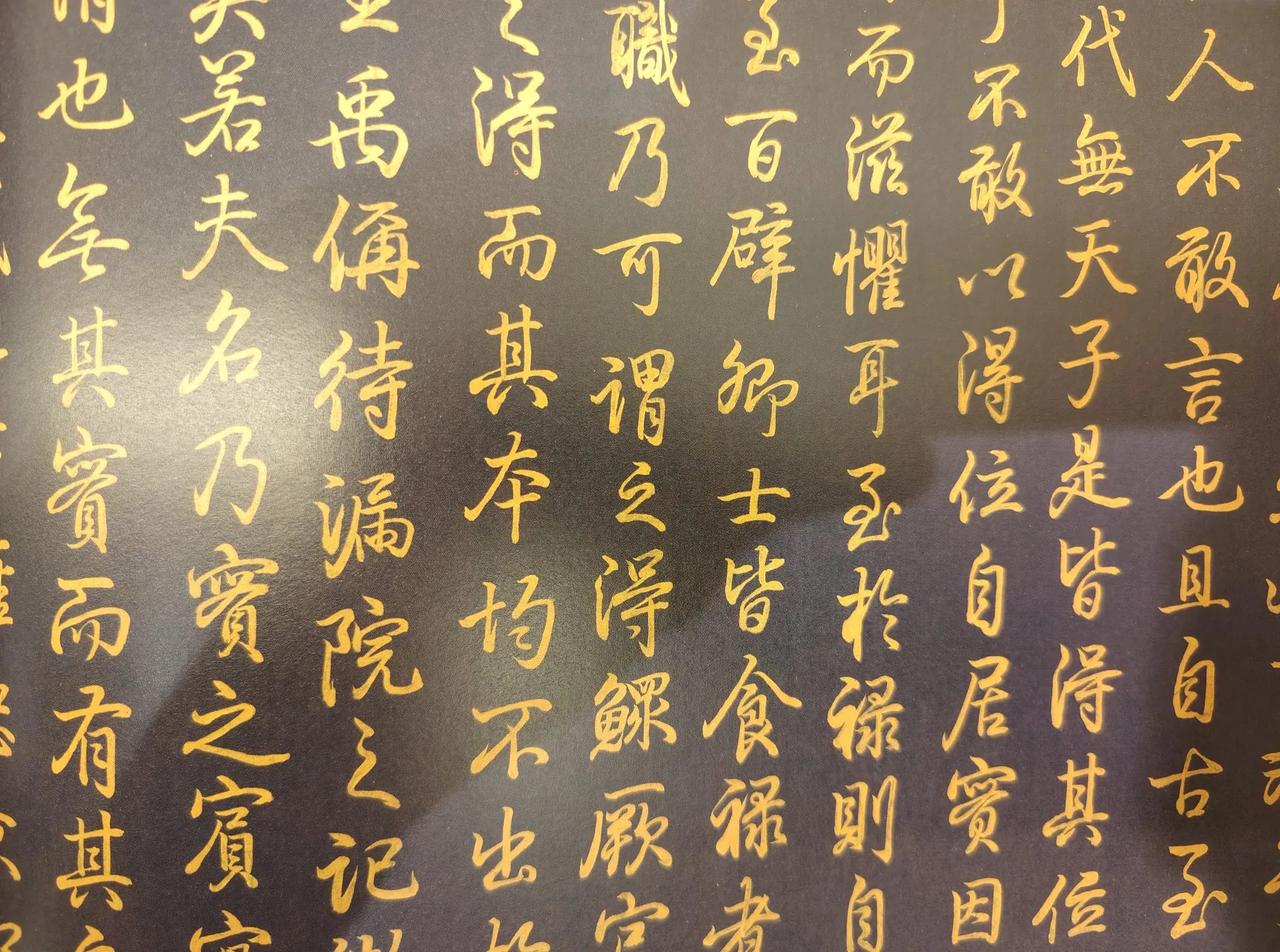 人不敢言也且自古至
代無天子是皆得其位
不敢以得位自居實因
而滋懼耳至於祿則自
至百辟卿士皆食祿者
職乃可謂之得鰥厥官
之得而其本均不出於
禹偁待漏院之記
若夫名乃實之賓
也無其實而有其